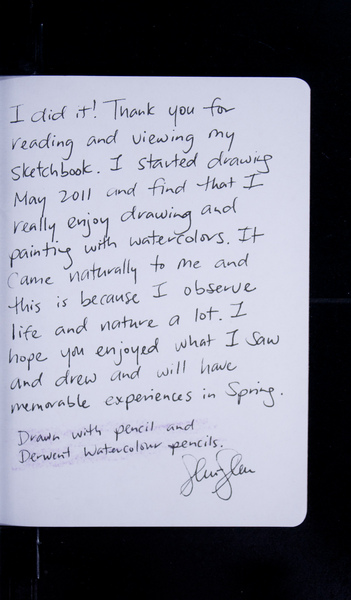 I did it! Thank you for
reading and viewing my
sketchbook. I started drawing
May 2011 and find that I
really enjoy drawing and
painting with watercolors. It
came naturally to me and
this is because I observe
life and nature a lot. I
hope you enjoyed what I saw
and drew and will have
memorable experiences in Spring.
Drawn with pencil and
Derwent Watercolour pencils.